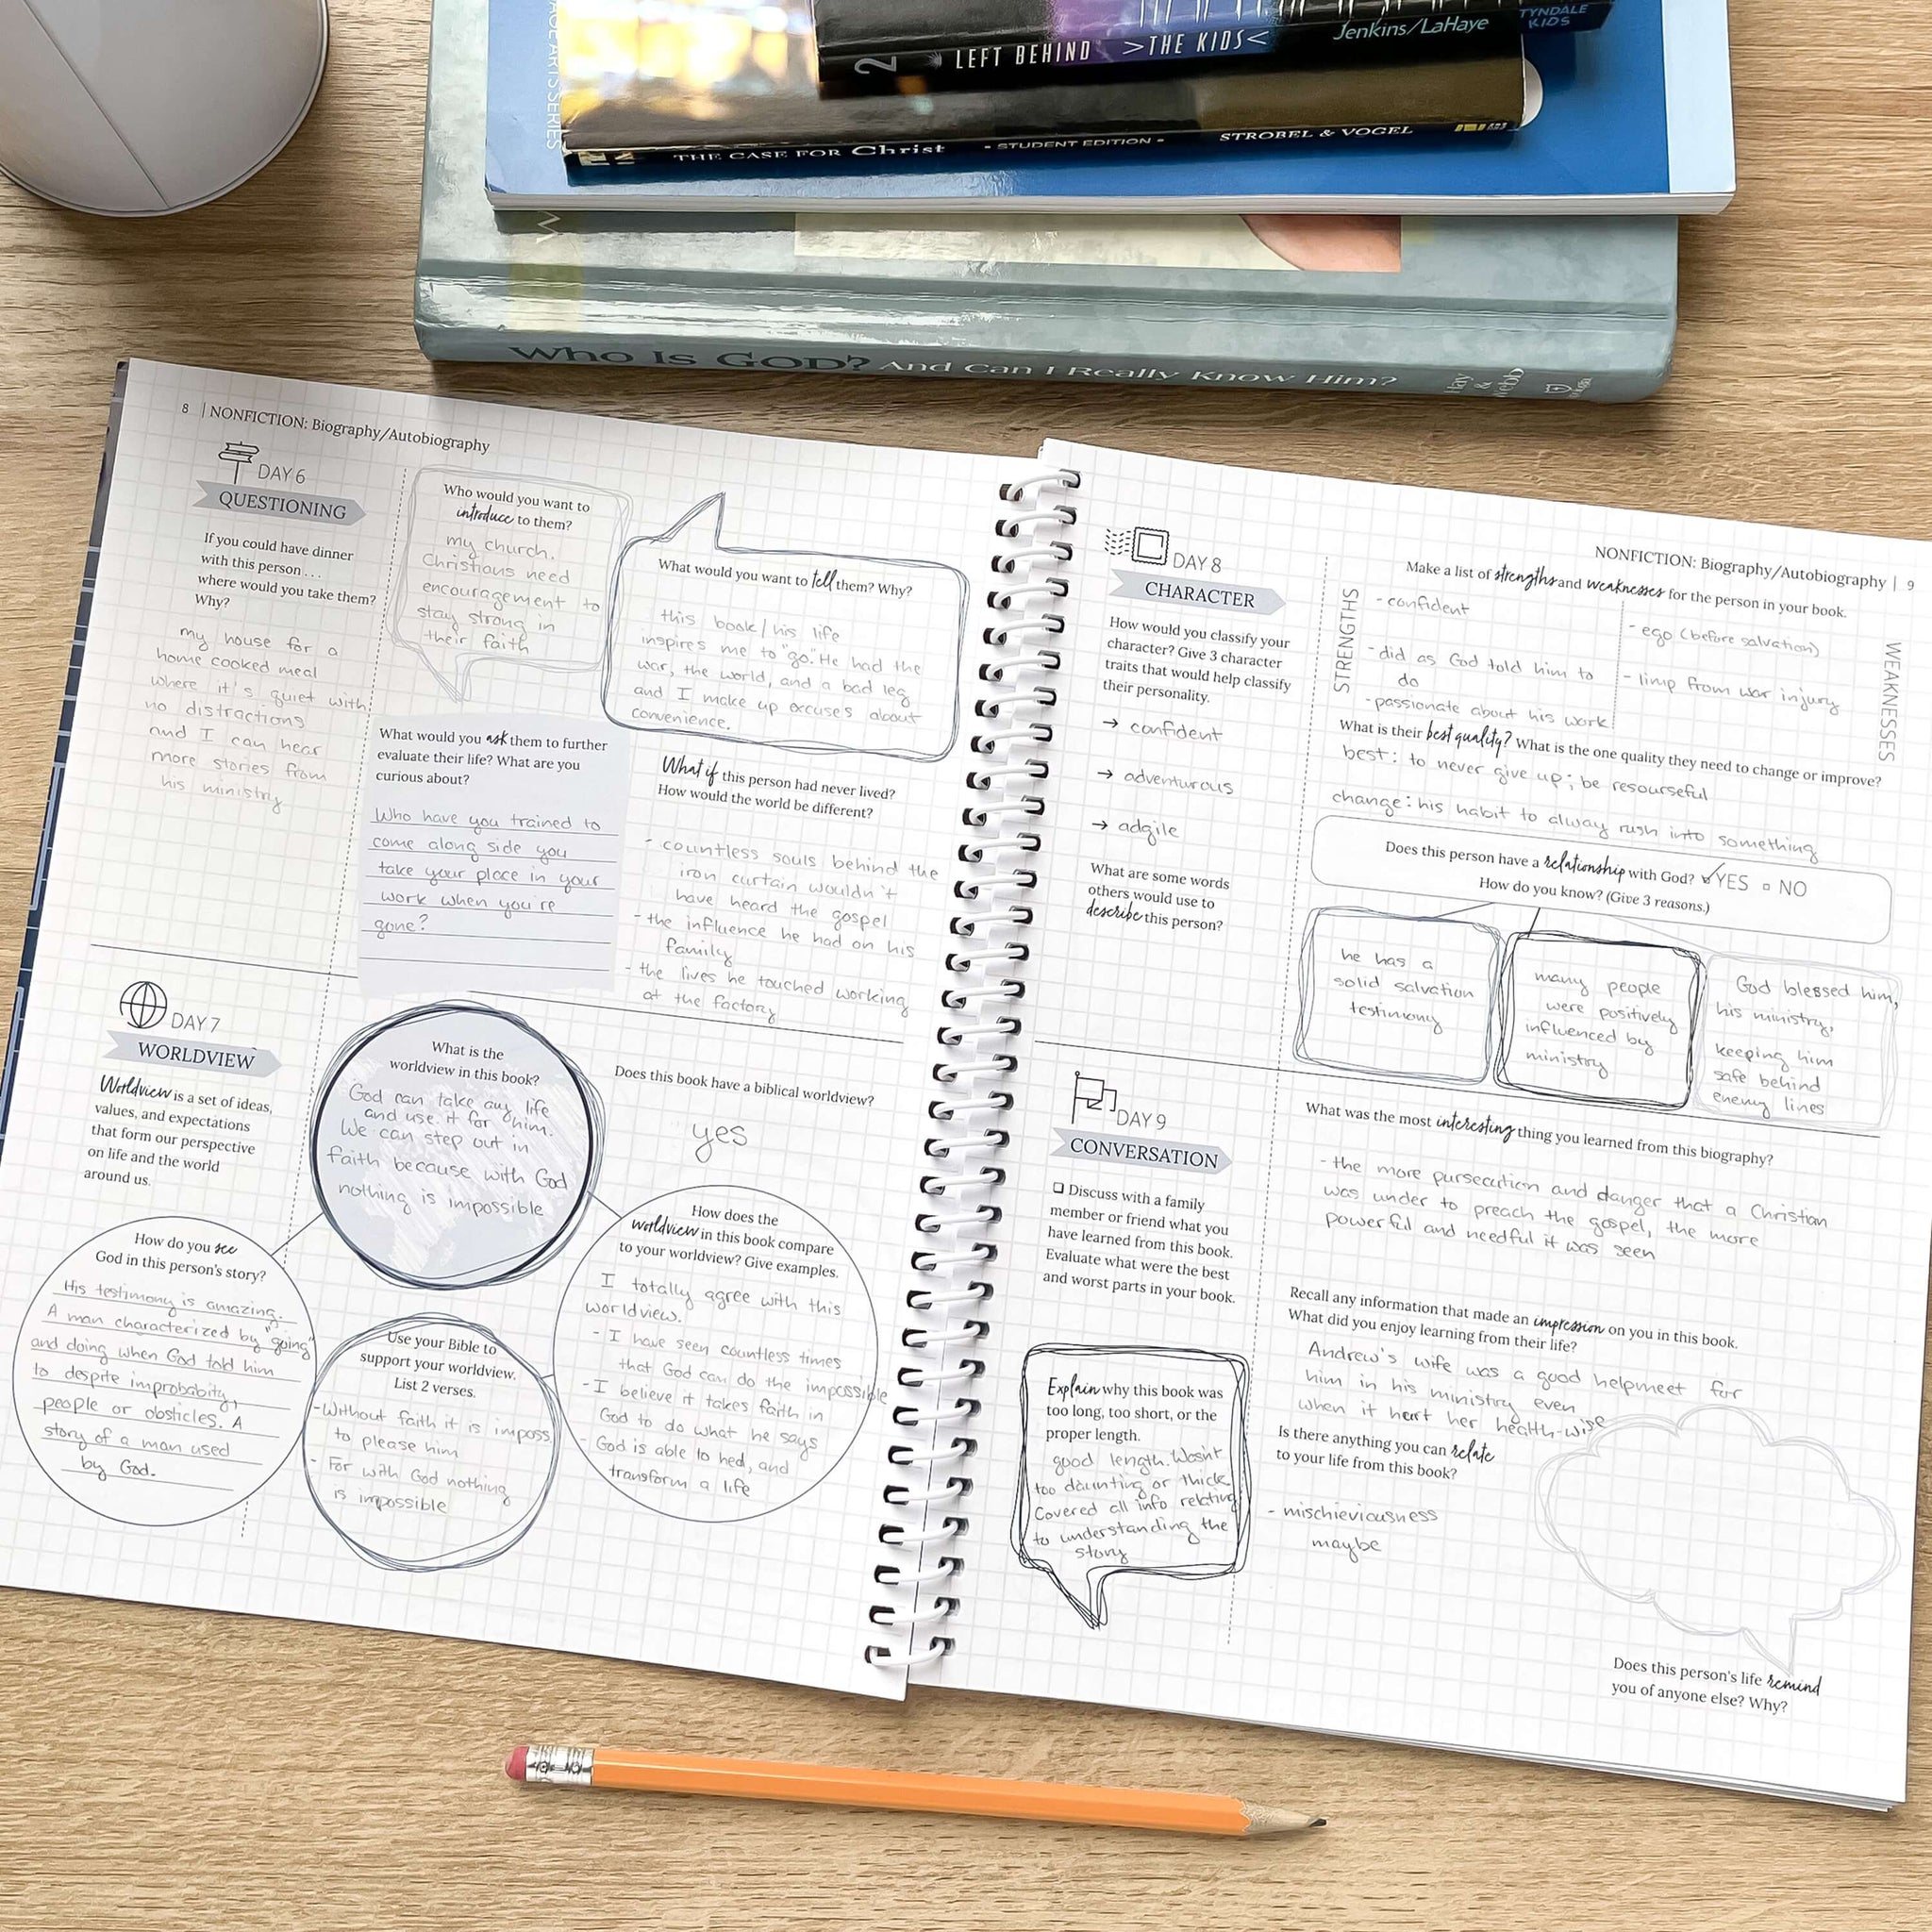 TYNDALE
KIDS
Jenkins/LaHaye
2 LEFT BEHIND >THE KIDS<
THE CASE FOR Christ - STUDENT EDITION - STROBEL & VOGEL
ARTS SERIES
W
Who Is GOD? And Can I Really Know Him?
&
8 | NONFICTION: Biography/Autobiography
DAY 6
QUESTIONING
If you could have dinner
with this person . . .
where would you take them?
Why?
my house for a
home cooked meal
where it's quiet with
no distractions
and I can hear
more stories from
his ministry
Who would you want to
introduce to them?
my church.
Christians need
encouragement to
stay strong in
their faith
What would you want to tell them? Why?
this book/his life
inspires me to "go." He had the
war, the world, and a bad leg
and I make up excuses about
convenience.
What would you ask them to further
evaluate their life? What are you
curious about?
Who have you trained to
come along side you
take your place in your
work when you're
gone?
What if this person had never lived?
How would the world be different?
- countless souls behind the
iron curtain wouldn't
have heard the gospel
- the influence he had on his
family
- the lives he touched working
at the factory
DAY 7
WORLDVIEW
Worldview is a set of ideas,
values, and expectations
that form our perspective
on life and the world
around us.
What is the
worldview in this book?
God can take any life
and use it for him.
We can step out in
faith because with God
nothing is impossible
Does this book have a biblical worldview?
yes
How do you see
God in this person's story?
His testimony is amazing.
A man characterized by "going"
and doing when God told him
to despite improbabity,
people or obsticles. A
story of a man used
by God.
Use your Bible to
support your worldview.
List 2 verses.
- Without faith it is imposs
to please him
- For with God nothing
is impossible
How does the
worldview in this book compare
to your worldview? Give examples.
I totally agree with this
worldview.
- I have seen countless times
that God can do the impossible
- I believe it takes faith in
God to do what he says
- God is able to hed, and
transform a life
NONFICTION: Biography/Autobiography | 9
DAY 8
CHARACTER
How would you classify your
character? Give 3 character
traits that would help classify
their personality.
→ confident
→ adventurous
→ adgile
What are some words
others would use to
describe this person?
Make a list of strengths and weaknesses for the person in your book.
STRENGTHS
- confident
- did as God told him to
do
- passionate about his work
- ego (before salvation)
- limp from war injury
WEAKNESSES
What is their best quality? What is the one quality they need to change or improve?
best: to never give up; be resourseful
change: his habit to alway rush into something
Does this person have a relationship with God? ✓YES □ NO
How do you know? (Give 3 reasons.)
he has a
solid salvation
testimony
many people
were positively
influenced by
ministry
God blessed him,
his ministry,
keeping him
safe behind
enemy lines
DAY 9
CONVERSATION
❏ Discuss with a family
member or friend what you
have learned from this book.
Evaluate what were the best
and worst parts in your book.
Explain why this book was
too long, too short, or the
proper length.
good length. Wasn't
too daunting or thick
Covered all info relating
to understanding the
story
What was the most interesting thing you learned from this biography?
- the more pursecution and danger that a Christian
was under to preach the gospel, the more
powerful and needful it was seen
Recall any information that made an impression on you in this book.
What did you enjoy learning from their life?
Andrew's wife was a good helpmeet for
him in his ministry even
when it hert her health-wise
Is there anything you can relate
to your life from this book?
- mischieviousness
maybe
Does this person's life remind
you of anyone else? Why?